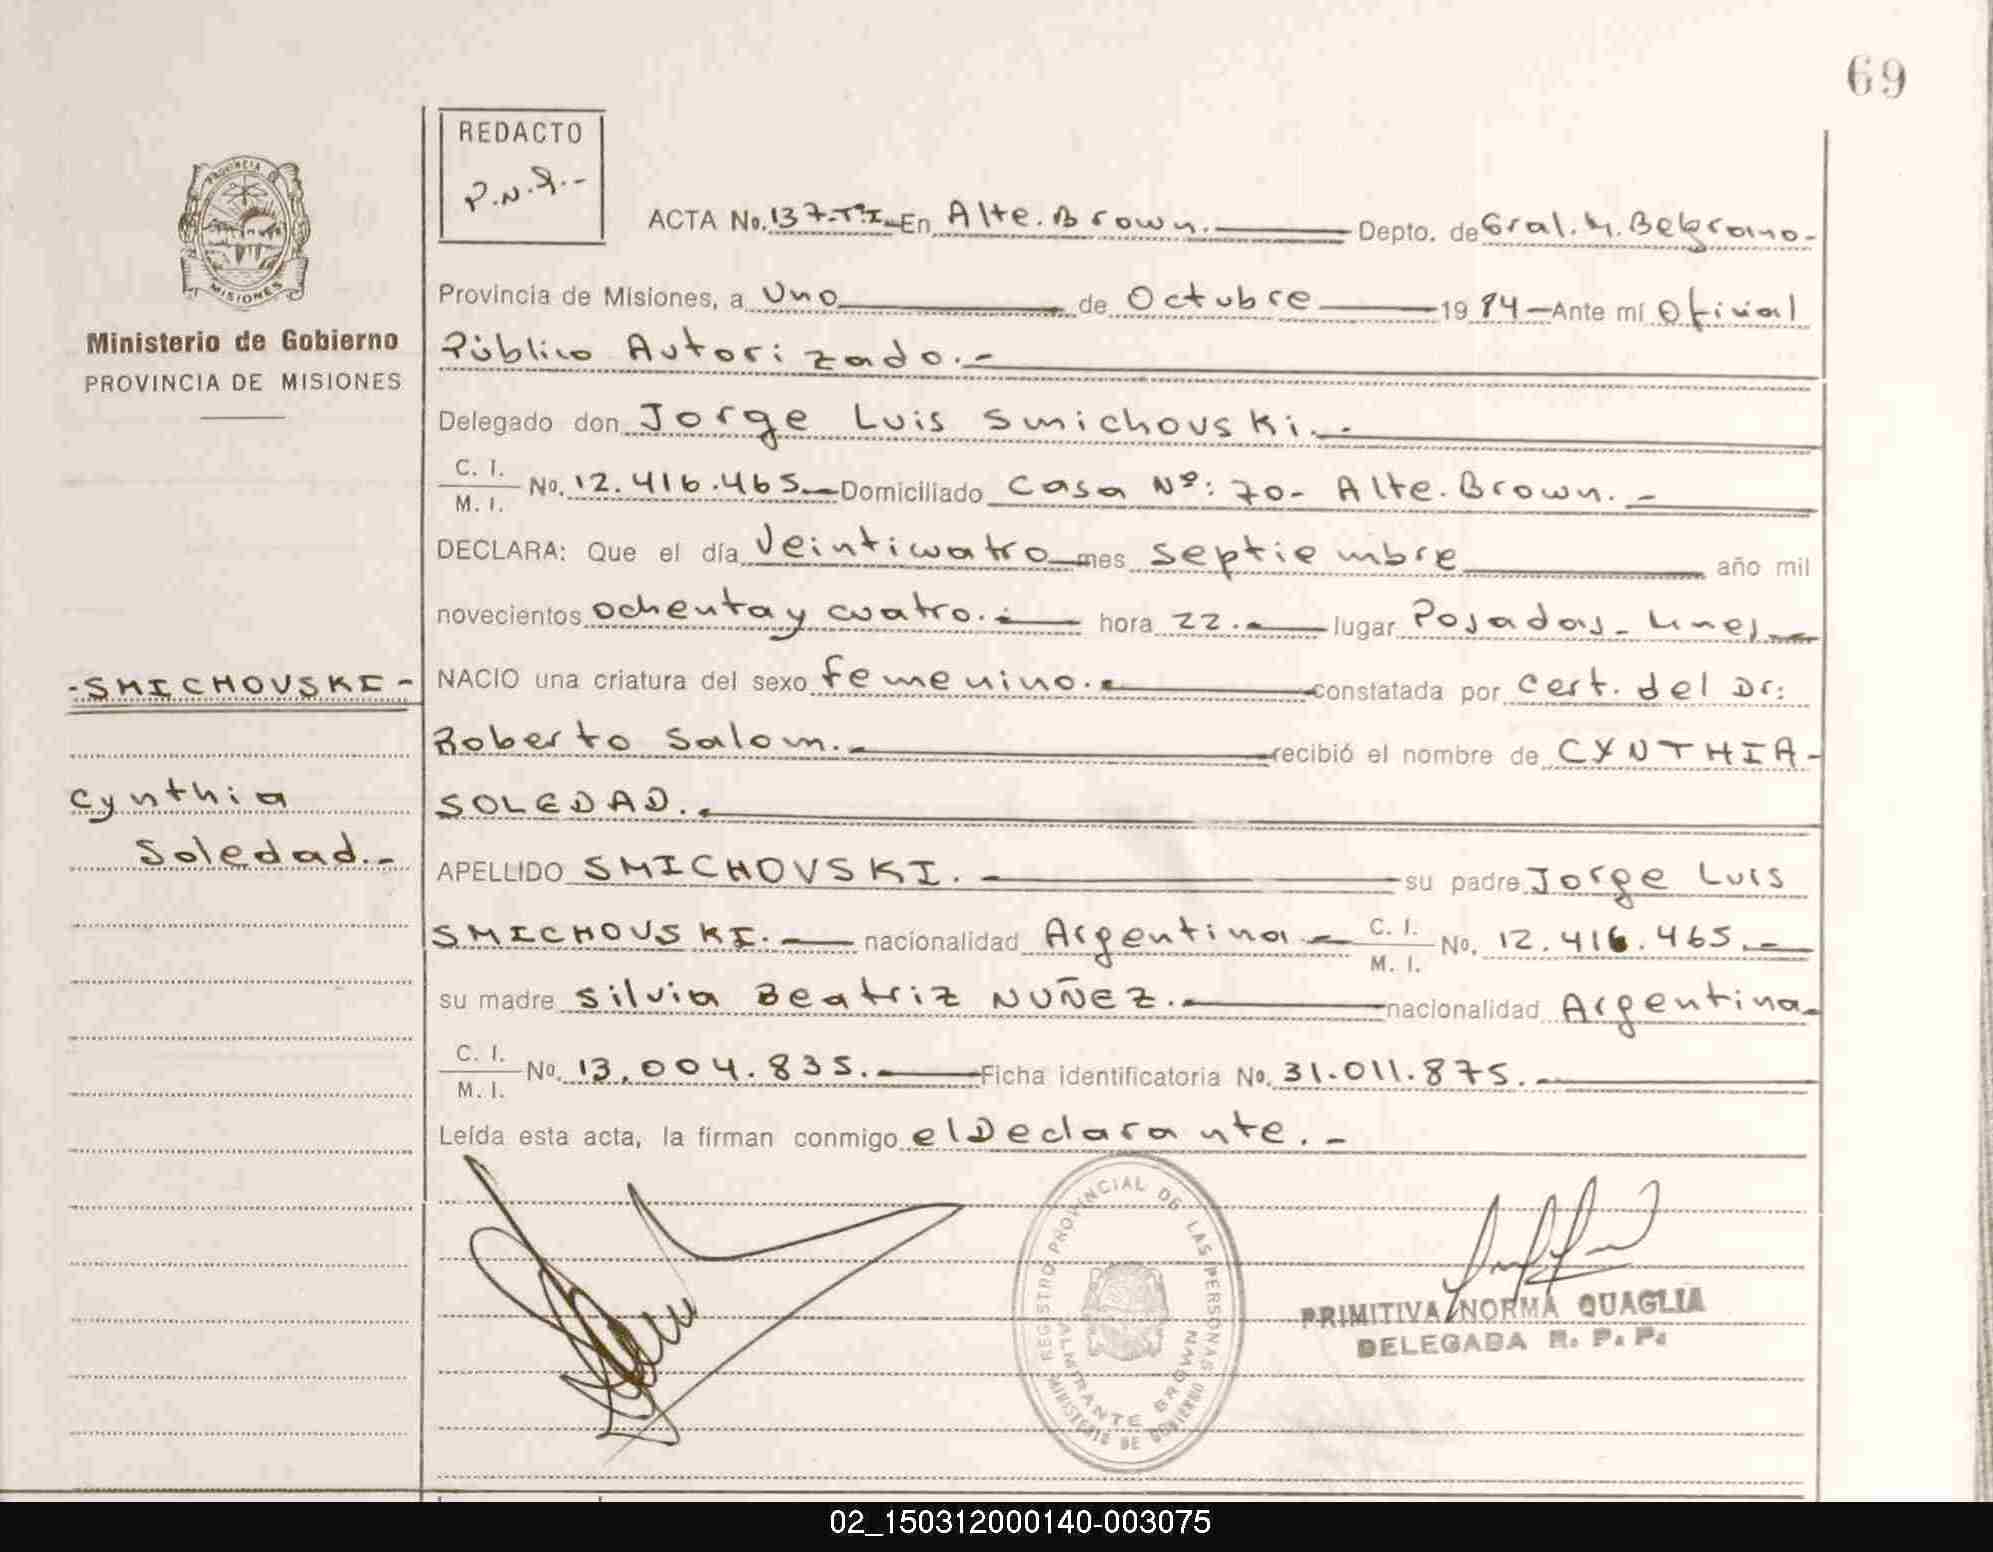 69
REDACTO
P.N.Q.-
ACTA No. 137-TºI- En Alte. Brown. Depto. de Gral. M. Belgrano-
PROVINCIA DE
MISIONES
Ministerio de Gobierno
PROVINCIA DE MISIONES
Provincia de Misiones, a Uno de Octubre 1984- Ante mí Oficial
Público Autorizado.-
Delegado don Jorge Luis Smichovski.-
C. I.
M. I. No. 12.416.465.- Domiciliado Casa Nº: 70- Alte. Brown.-
DECLARA: Que el día Veinticuatro mes septiembre año mil
novecientos ochenta y cuatro.- hora 22.- lugar Posadas- Mnes.-
-SMICHOVSKI-
NACIO una criatura del sexo femenino.- constatada por Cert. del Dr:
Roberto Salom.- recibió el nombre de CYNTHIA-
Cynthia
SOLEDAD.-
Soledad.-
APELLIDO SMICHOVSKI.- su padre Jorge Luis
SMICHOVSKI.- nacionalidad Argentina.- C. I.
M. I. No. 12.416.465.-
su madre Silvia Beatriz NUÑEZ.- nacionalidad Argentina-
C. I.
M. I. No. 13.004.835.- Ficha identificatoria No. 31.011.875.-
Leída esta acta, la firman conmigo el Declarante.-
REGISTRO PROVINCIAL DE LAS PERSONAS
ALMIRANTE BROWN
MINISTERIO DE GOBIERNO
PRIMITIVA NORMA QUAGLIA
DELEGADA R. P. P.
02_150312000140-003075